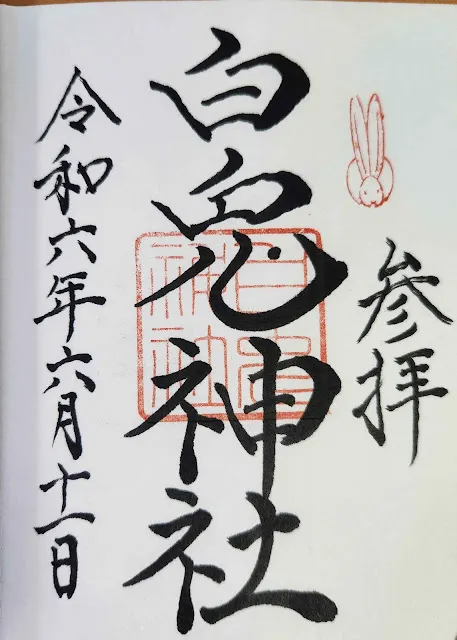 参拝
白兎神社
白兎神社
令和六年六月十一日